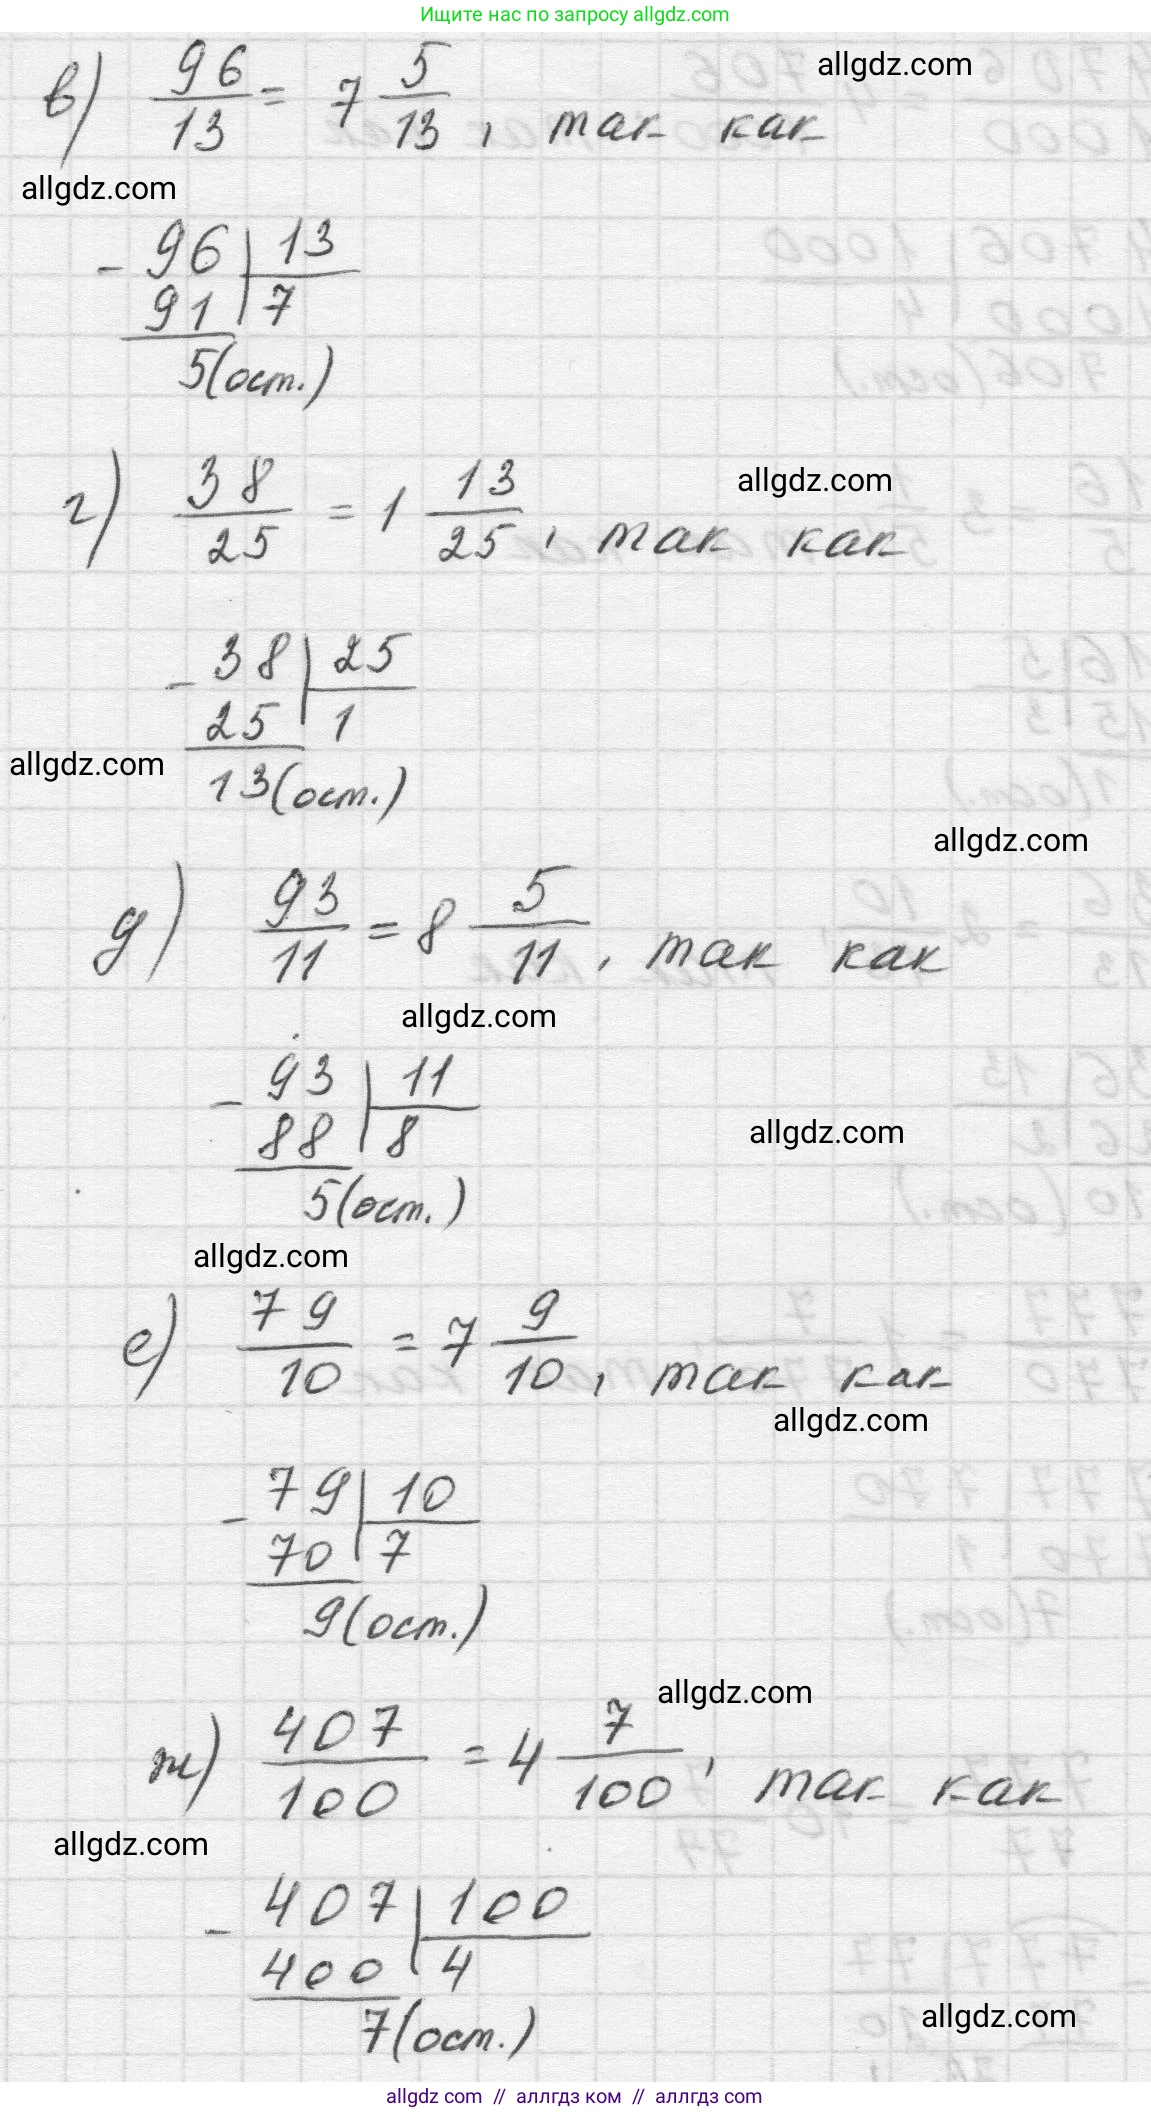 Ищите нас по запросу allgdz.com
в) 96/13 = 7 5/13, так как
allgdz.com
allgdz.com
- 96 | 13
91 | 7
5(ост.)
г) 38/25 = 1 13/25, так как
allgdz.com
- 38 | 25
25 | 1
allgdz.com
13(ост.)
allgdz.com
д) 93/11 = 8 5/11, так как
allgdz.com
- 93 | 11
88 | 8
allgdz.com
5(ост.)
allgdz.com
е) 79/10 = 7 9/10, так как
allgdz.com
- 79 | 10
70 | 7
9(ост.)
allgdz.com
ж) 407/100 = 4 7/100, так как
allgdz.com
- 407 | 100
400 | 4
7(ост.)
allgdz.com
allgdz com // аллгдз ком // аллгдз com